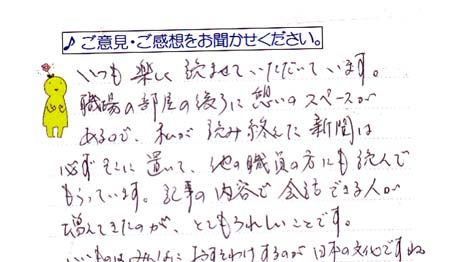 ♪ ご意見・ご感想をお聞かせください。
いつも楽しく読ませていただいています。
職場の部屋の後ろに憩いのスペースが
あるので、私が読み終えた新聞は
必ずそこに置いて、他の職員の方にも読んで
もらっています。記事の内容で会話できる人が
増えてきたのが、とてもうれしいことです。
いいものはみんなにおすそわけするのが日本の文化ですね